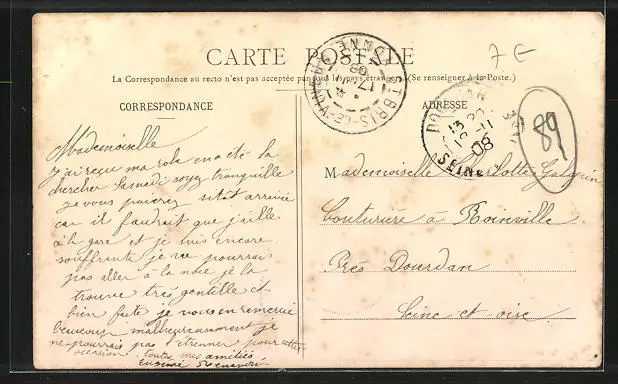 CARTE POSTALE
La Correspondance au recto n'est pas acceptée par tous les pays étrangers (Se renseigner à la Poste.)
7 E
CORRESPONDANCE
ADRESSE
ST BRIS-LE-VINEUX YONNE
17
08
DOURDAN
13
11
08
SEINE
89
Mademoiselle
j'ai reçu ma robe on a été la
chercher Samedi soyez tranquille
je vous sitôt arrivée
car il faudrait que j'aille
à la gare et je suis encore
souffrante je ne pourrais
pas aller à la noce je la
trouve très gentille et
bien faite je vous en remercie
beaucoup malheureusement je
ne pourrais pas étrenner pour cette
occasion toutes mes amitiés
Mademoiselle Charlotte
Couturière à Roinville
Près Dourdan
Seine et oise